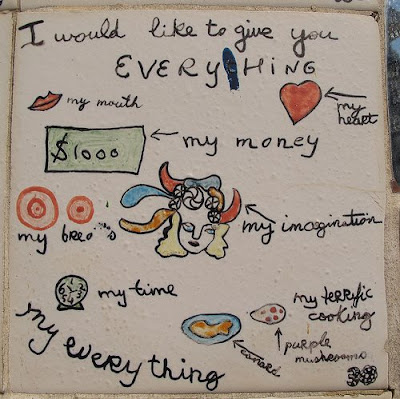 I would like to give you
EVERYTHING
my mouth
my heart
$1000
my money
my imagination
my
my time
my terrific
cooking
purple
mushrooms
my everything